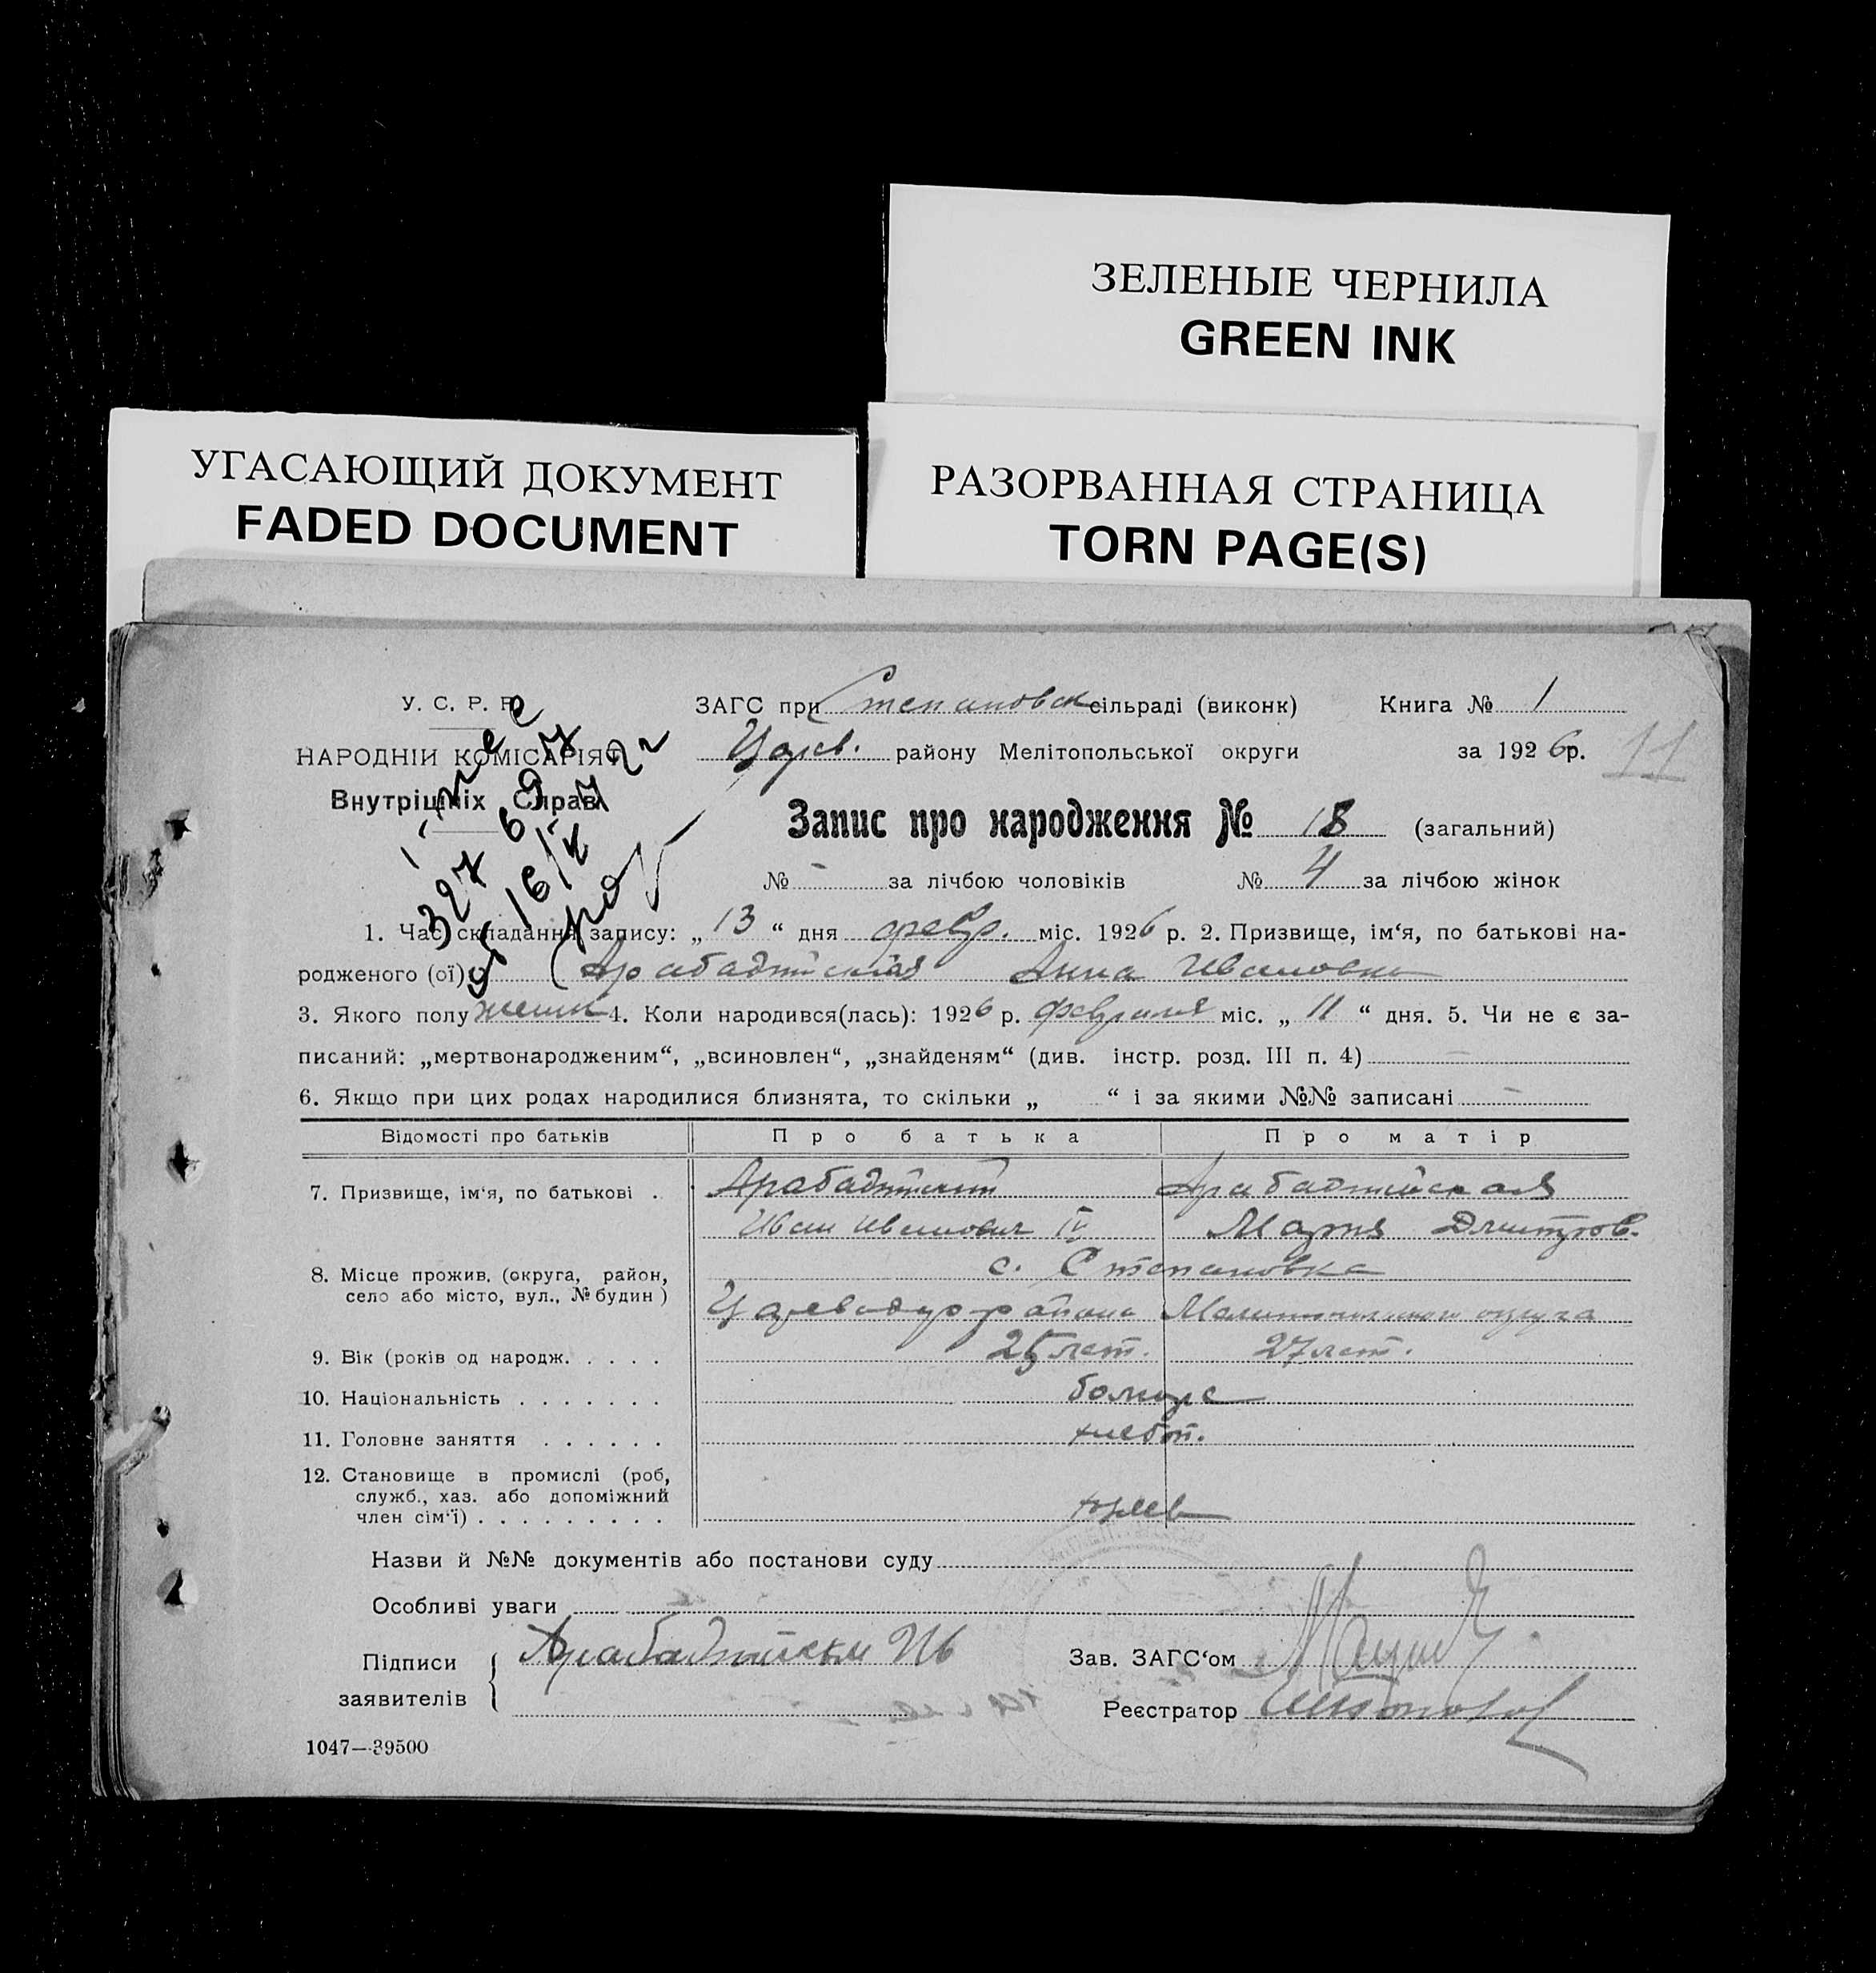 ЗЕЛЕНЫЕ ЧЕРНИЛА
GREEN INK
УГАСАЮЩИЙ ДОКУМЕНТ
FADED DOCUMENT
РАЗОРВАННАЯ СТРАНИЦА
TORN PAGE(S)
У. С. Р. Р.
НАРОДНІЙ КОМІСАРІЯТ
Внутрішніх Справ
ЗАГС при Степановск сільраді (виконк) Книга № 1
Царев. району Мелітопольської округи за 1926 р.
11
Запис про народження № 18 (загальний)
№ - за лічбою чоловіків № 4 за лічбою жінок
1. Час складання запису: „ 13 “ дня февр. міс. 1926 р. 2. Призвище, ім‘я, по батькові на-
родженого (ої) Арабаджийская Анна Ивановна
3. Якого полу женск 4. Коли народився(лась): 1926 р. февраля міс. „ 11 “ дня. 5. Чи не є за-
писаний: „мертвонародженим“, „всиновлен“, „знайденям“ (див. інстр. розд. III п. 4) —
6. Якщо при цих родах народилися близнята, то скільки „ “ і за якими №№ записані —
Відомості про батьків Про батька Про матір
7. Призвище, ім‘я, по батькові . Арабаджийский Арабаджийская
Иван Иванович IV Мария Дмитров.
8. Місце прожив. (округа, район, с. Степановка
село або місто, вул., № будин) района Мелитопольского округа
9. Вік (років од народж. . . . . 25 лет. 27 лет.
10. Національність . . . . . . . болгаре
11. Головне заняття . . . . . . хлебоп.
12. Становище в промислі (роб,
служб., хаз. або допоміжний
член сім‘ї) . . . . . . . . .
Назви й №№ документів або постанови суду
Особливі уваги
Підписи
заявителів
Арабаджийски Ив
Зав. ЗАГС‘ом
Реєстратор
1047—39500